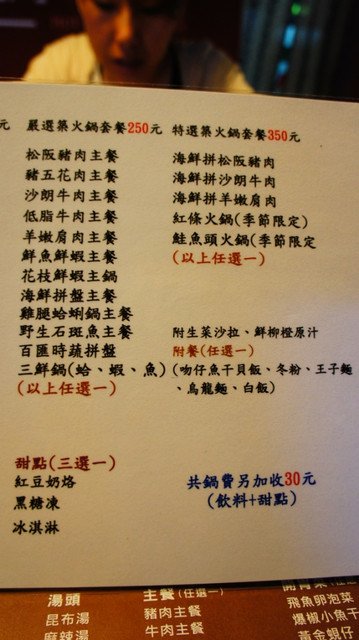 元
嚴選築火鍋套餐250元
松阪豬肉主餐
豬五花肉主餐
沙朗牛肉主餐
低脂牛肉主餐
羊嫩肩肉主餐
鮮魚鮮蝦主餐
花枝鮮蝦主鍋
海鮮拼盤主餐
雞腿蛤蜊鍋主餐
野生石斑魚主餐
百匯時蔬拼盤
三鮮鍋(蛤、蝦、魚)
(以上任選一)
特選築火鍋套餐350元
海鮮拼松阪豬肉
海鮮拼沙朗牛肉
海鮮拼羊嫩肩肉
紅條火鍋(季節限定)
鮭魚頭火鍋(季節限定
(以上任選一)
附生菜沙拉、鮮柳橙原汁
附餐(任選一)
(吻仔魚干貝飯、冬粉、王子麵
、烏龍麵、白飯)
甜點(三選一)
紅豆奶烙
黑糖凍
冰淇淋
共鍋費另加收30元
(飲料+甜點)
湯頭
昆布湯
麻辣湯
主餐(任選一)
豬肉主餐
牛肉主餐
飛魚卵泡菜
爆椒小魚干
黃金蜆仔